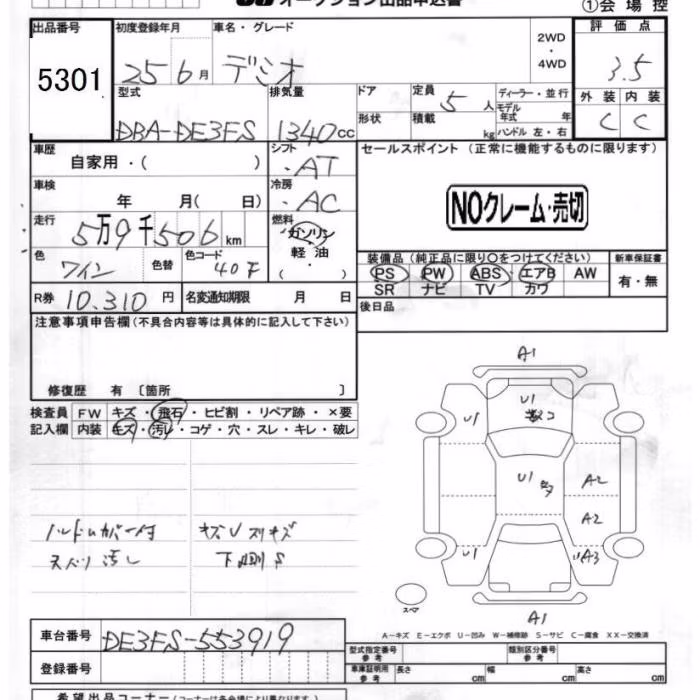 オークション出品申込書
①会場控
出品番号 初度登録年月 車名・グレード 2WD・4WD 評価点
5301 25 6月 デミオ 3.5
型式 排気量 ドア 定員 5人 ディーラー・並行 外装 内装
DBA-DE3FS 1340cc 形状 積載 kg モデル年式 年 ハンドル 左・右 C C
車歴 自家用・( ) シフト ・AT セールスポイント (正常に機能するものに限ります)
車検 年 月( 日) 冷房 ・AC
NOクレーム・売切
走行 5万9千506km 燃料 ガソリン
軽油
・( )
色 ワイン 色替 色コード 40F
装備品 (純正品に限り○をつけてください) 新車保証書
PS PW ABS・エアB AW 有・無
SR ナビ TV カワ
R券 10.310円 名変通知期限 月 日 後日品
注意事項申告欄 (不具合内容等は具体的に記入して下さい)
修復歴 有 〔箇所 〕
検査員 FW キズ・飛石・ヒビ割・リペア跡・×要
記入欄 内装 キズ・汚レ・コゲ・穴・スレ・キレ・破レ
A1
U1
U1
U1 A2
A2
U1 UA3
A1
スペア
キズUスリキズ
汚レ 下回りS
A－キズ E－エクボ U－凹み W－補修跡 S－サビ C－腐食 XX－交換済
車台番号 DE3FS-553919
型式指定番号 参考 類別区分番号 参考
登録番号 車庫証明用 参考 長さ cm 幅 cm 高さ cm
希望出品コーナー (コーナーは各会場により異なります)